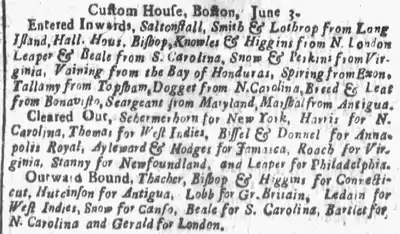 Custom House, Boston, June 3.
Entered Inwards, Saltonstall, Smith & Lothrop from Long
Island, Hall. Hout, Bishop, Knowles & Higgins from N. London
Leaper & Beale from S. Carolina, Snow & Perkins from Vir-
ginia, Vaining from the Bay of Honduras, Spiring from Exon,
Tallamy from Topsham, Dogget from N. Carolina, Breed & Leat
from Bonavisto, Seargeant from Maryland, Marshal from Antigua.
Cleared Out, Schermerhorn for New York, Harris for N.
Carolina, Thomas for West Indies, Bissel & Donnel for Anna-
polis Royal, Ayleward & Hodges for Jamaica, Roach for Vir-
ginia, Stanny for Newfoundland, and Leaper for Philadelphia.
Outward Bound, Thacher, Bishop & Higgins for Connecti-
cut, Hutcinson for Antigua, Lobb for Gr. Britain, Ledain for
West Indies, Snow for Canso, Beale for S. Carolina, Bartlet for
N. Carolina and Gerald for London.